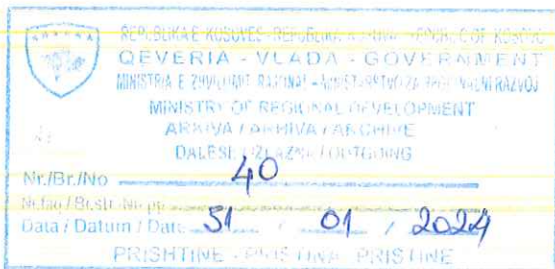 REPUBLIKA E KOSOVËS - REPUBLIKA KOSOVA - REPUBLIC OF KOSOVO
QEVERIA - VLADA - GOVERNMENT
MINISTRIA E ZHVILLIMIT RAJONAL - MINISTARSTVO ZA REGIONALNI RAZVOJ
MINISTRY OF REGIONAL DEVELOPMENT
ARKIVA / ARHIVA / ARCHIVE
DALËSE / IZLAZNA / OUTGOING
Nr./Br./No 40
Nr.faq / Br.str.
Data / Datum / Date 31 / 01 / 2024
PRISHTINË - PRIŠTINA - PRISTINE